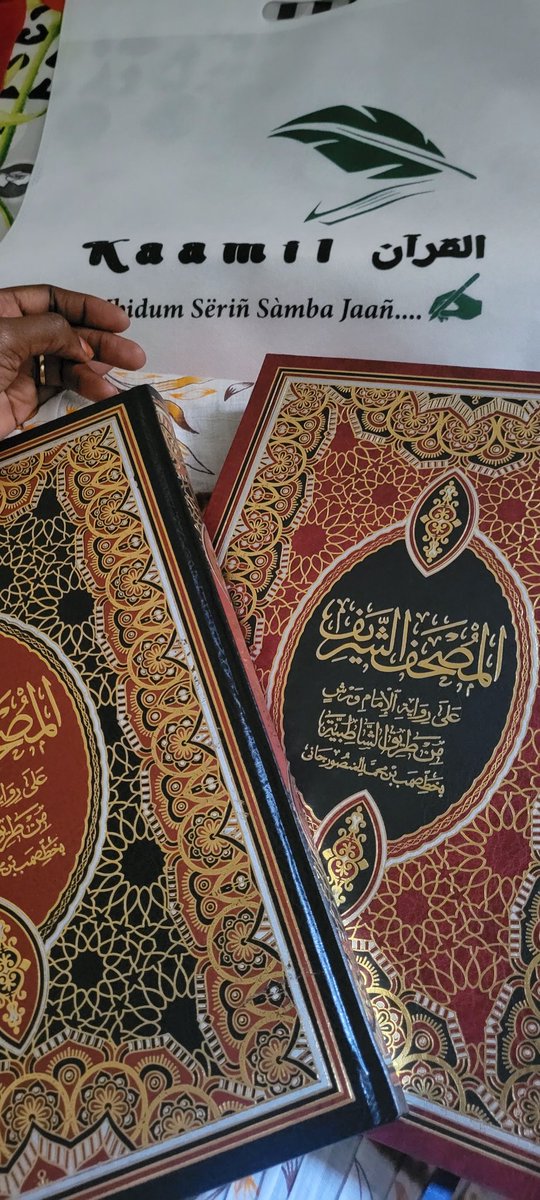 Kaamil القرآن
Mbidum Sëriñ Sàmba Jaañ....
المصحف الشريف
على رواية الإمام ورش
من طريق الشاطبية
بخط صمب بن محمد المنصور جاني
على
بخط صمب بن